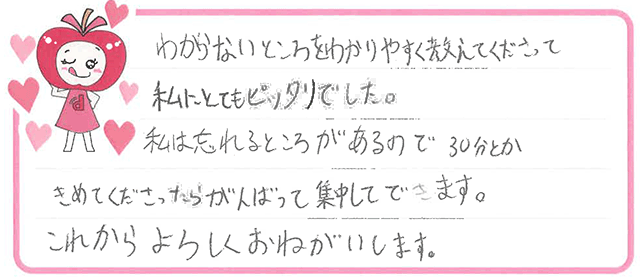 わからないところをわかりやすく教えてくださって
私にとてもピッタリでした。
私は忘れるところがあるので 30分とか
きめてくださったらがんばって集中してできます。
これからよろしくおねがいします。
d